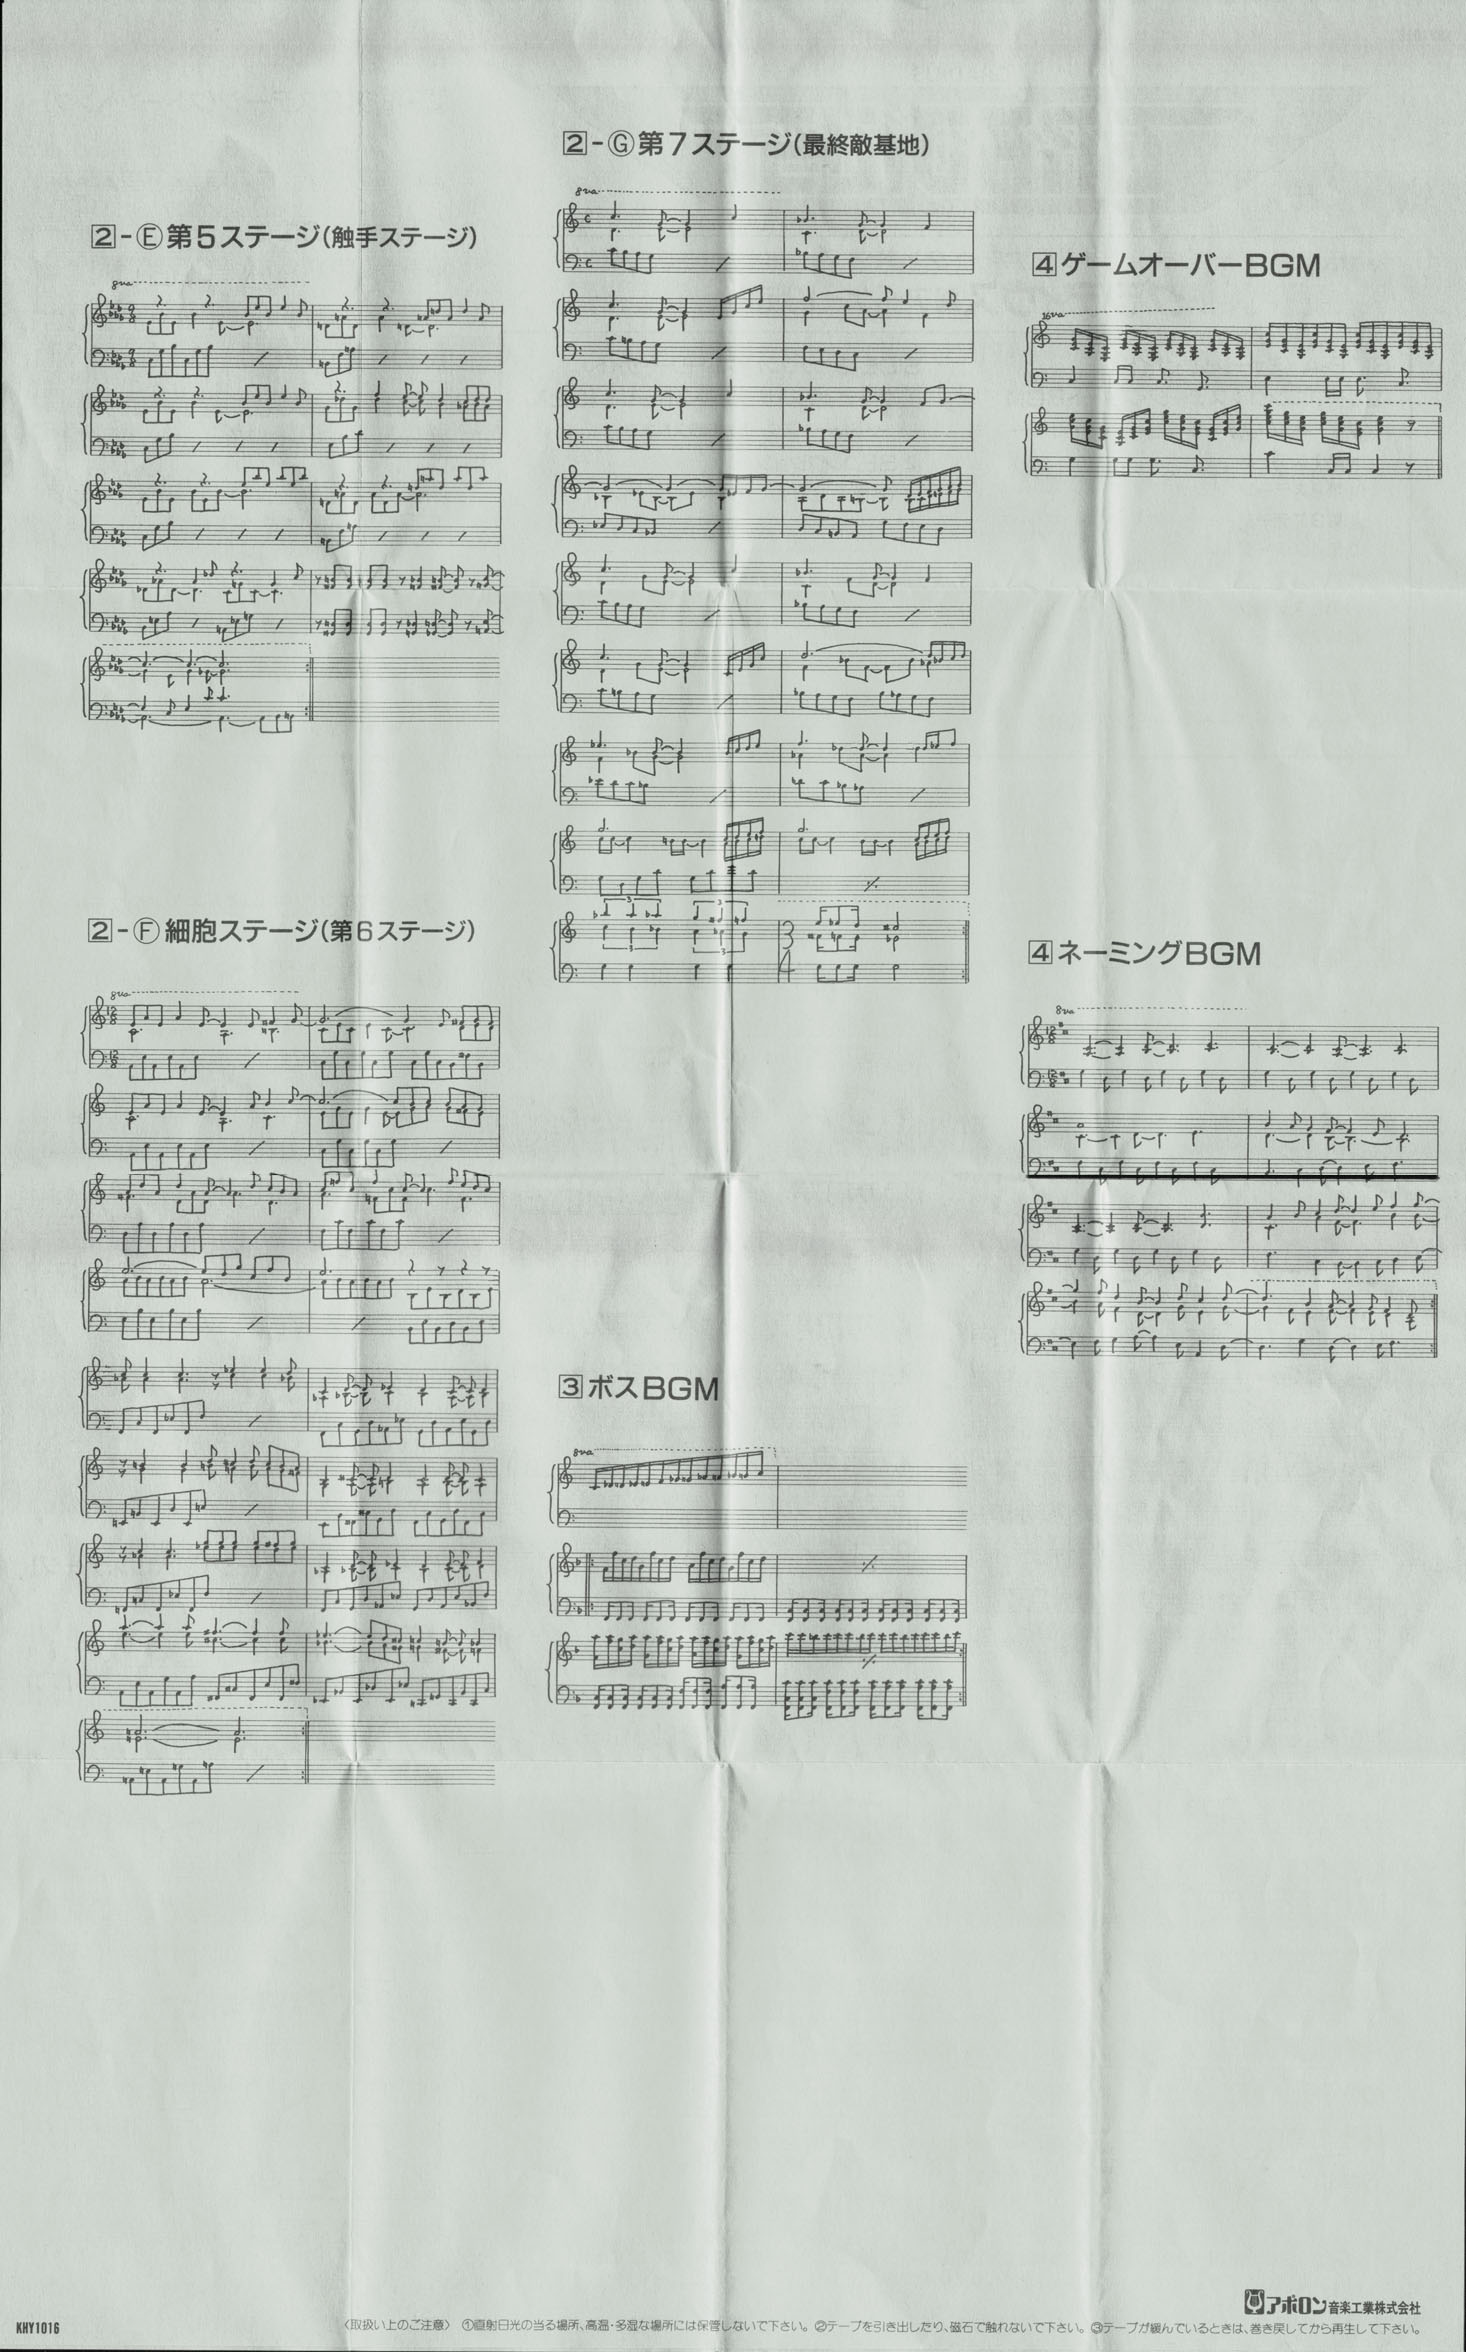 2-Ⓔ第5ステージ(触手ステージ)
8va
2-Ⓕ細胞ステージ(第6ステージ)
8va
2-Ⓖ第7ステージ(最終敵基地)
8va
3 3
3 3
3
4
3ボスBGM
8va
4ゲームオーバーBGM
16va
4ネーミングBGM
8va
アポロン音楽工業株式会社
KHY1016
〈取扱い上のご注意〉 ①直射日光の当る場所、高温・多湿な場所には保管しないで下さい。②テープを引き出したり、磁石で触れないで下さい。③テープが緩んでいるときは、巻き戻してから再生して下さい。